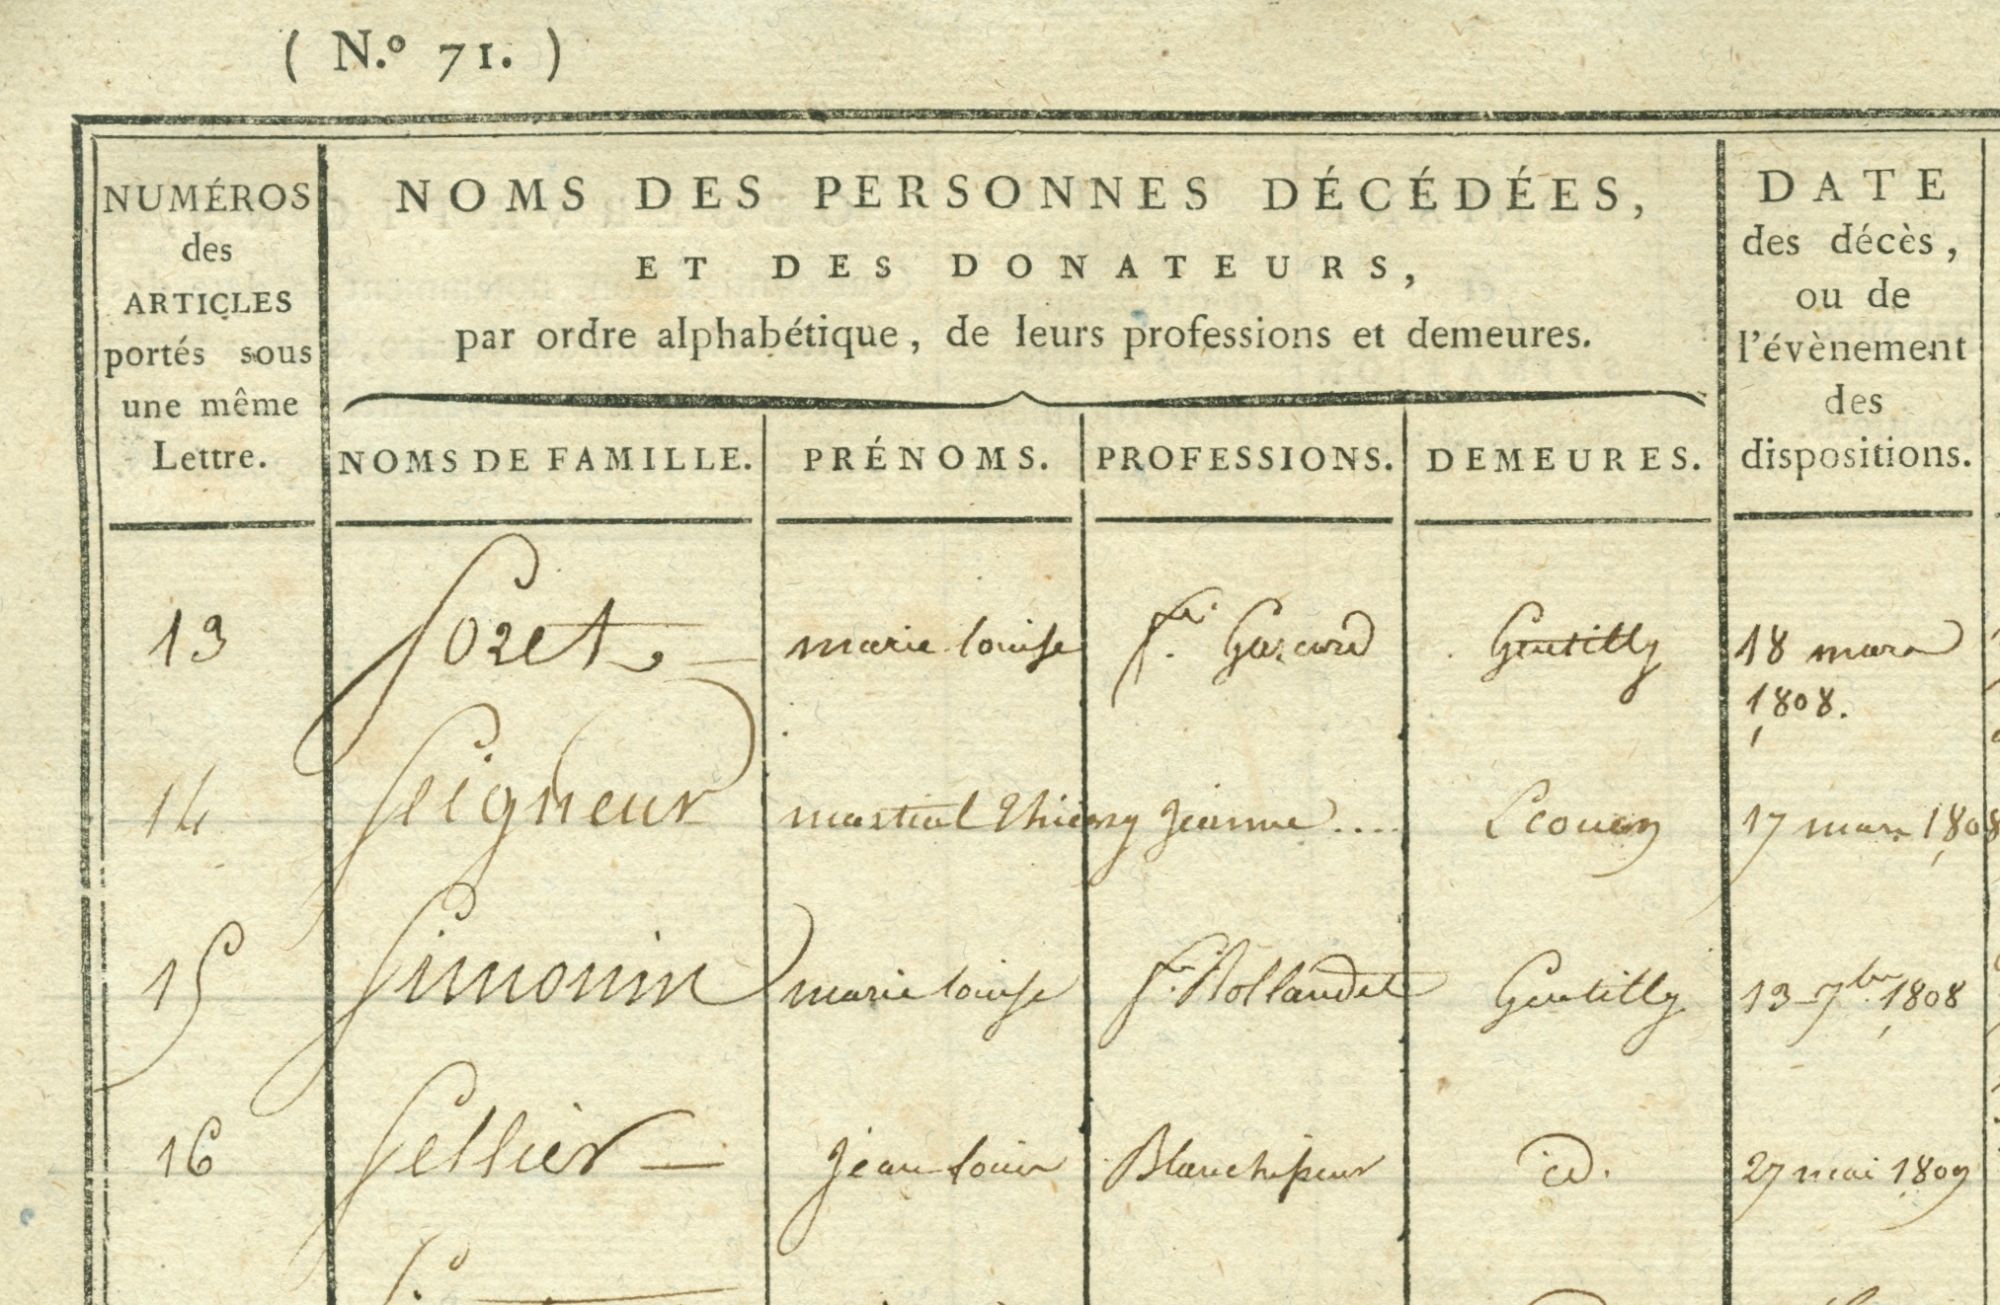 ( N.º 71. )
NUMÉROS
des
ARTICLES
portés sous
une même
Lettre.
NOMS DES PERSONNES DÉCÉDÉES,
ET DES DONATEURS,
par ordre alphabétique, de leurs professions et demeures.
DATE
des décès,
ou de
l'évènement
des
dispositions.
NOMS DE FAMILLE. PRÉNOMS. PROFESSIONS. DEMEURES.
13 Soret marie louise Gentilly 18 mars
1808.
14 Seigneur martial thierry jeanne .... Ecouen 17 mars 1808
15 Simonin marie louise fe. Rollandet Gentilly 13 7bre 1808
16 Sellier jean louis Blanchisseur id. 27 mai 1809